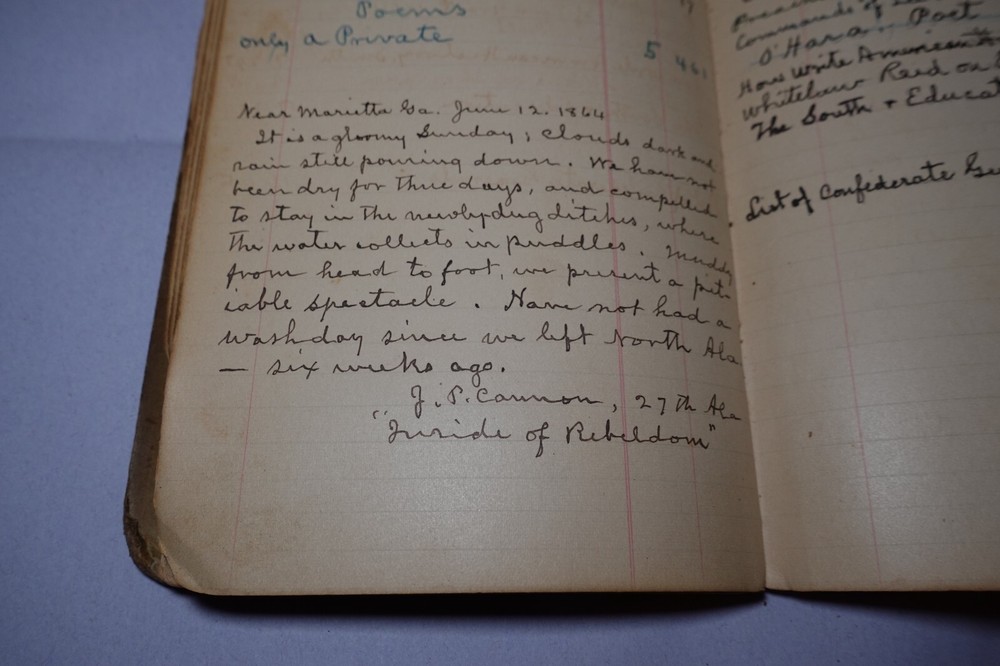 Poems
only a Private
5 461
Near Marietta Ga. June 12. 1864
It is a gloomy Sunday; clouds dark and
rain still pouring down. We have not
been dry for three days, and compelled
to stay in the newly dug ditches, where
the water collects in puddles. Muddy
from head to foot, we present a pit-
iable spectacle. Have not had a
washday since we left North Ala
— six weeks ago.
J. P. Cannon, 27th Ala
"Inside of Rebeldom"
Commands of
O'Hara. Poet
How write American
Whitelaw Reid on
The South + Educat
List of Confederate